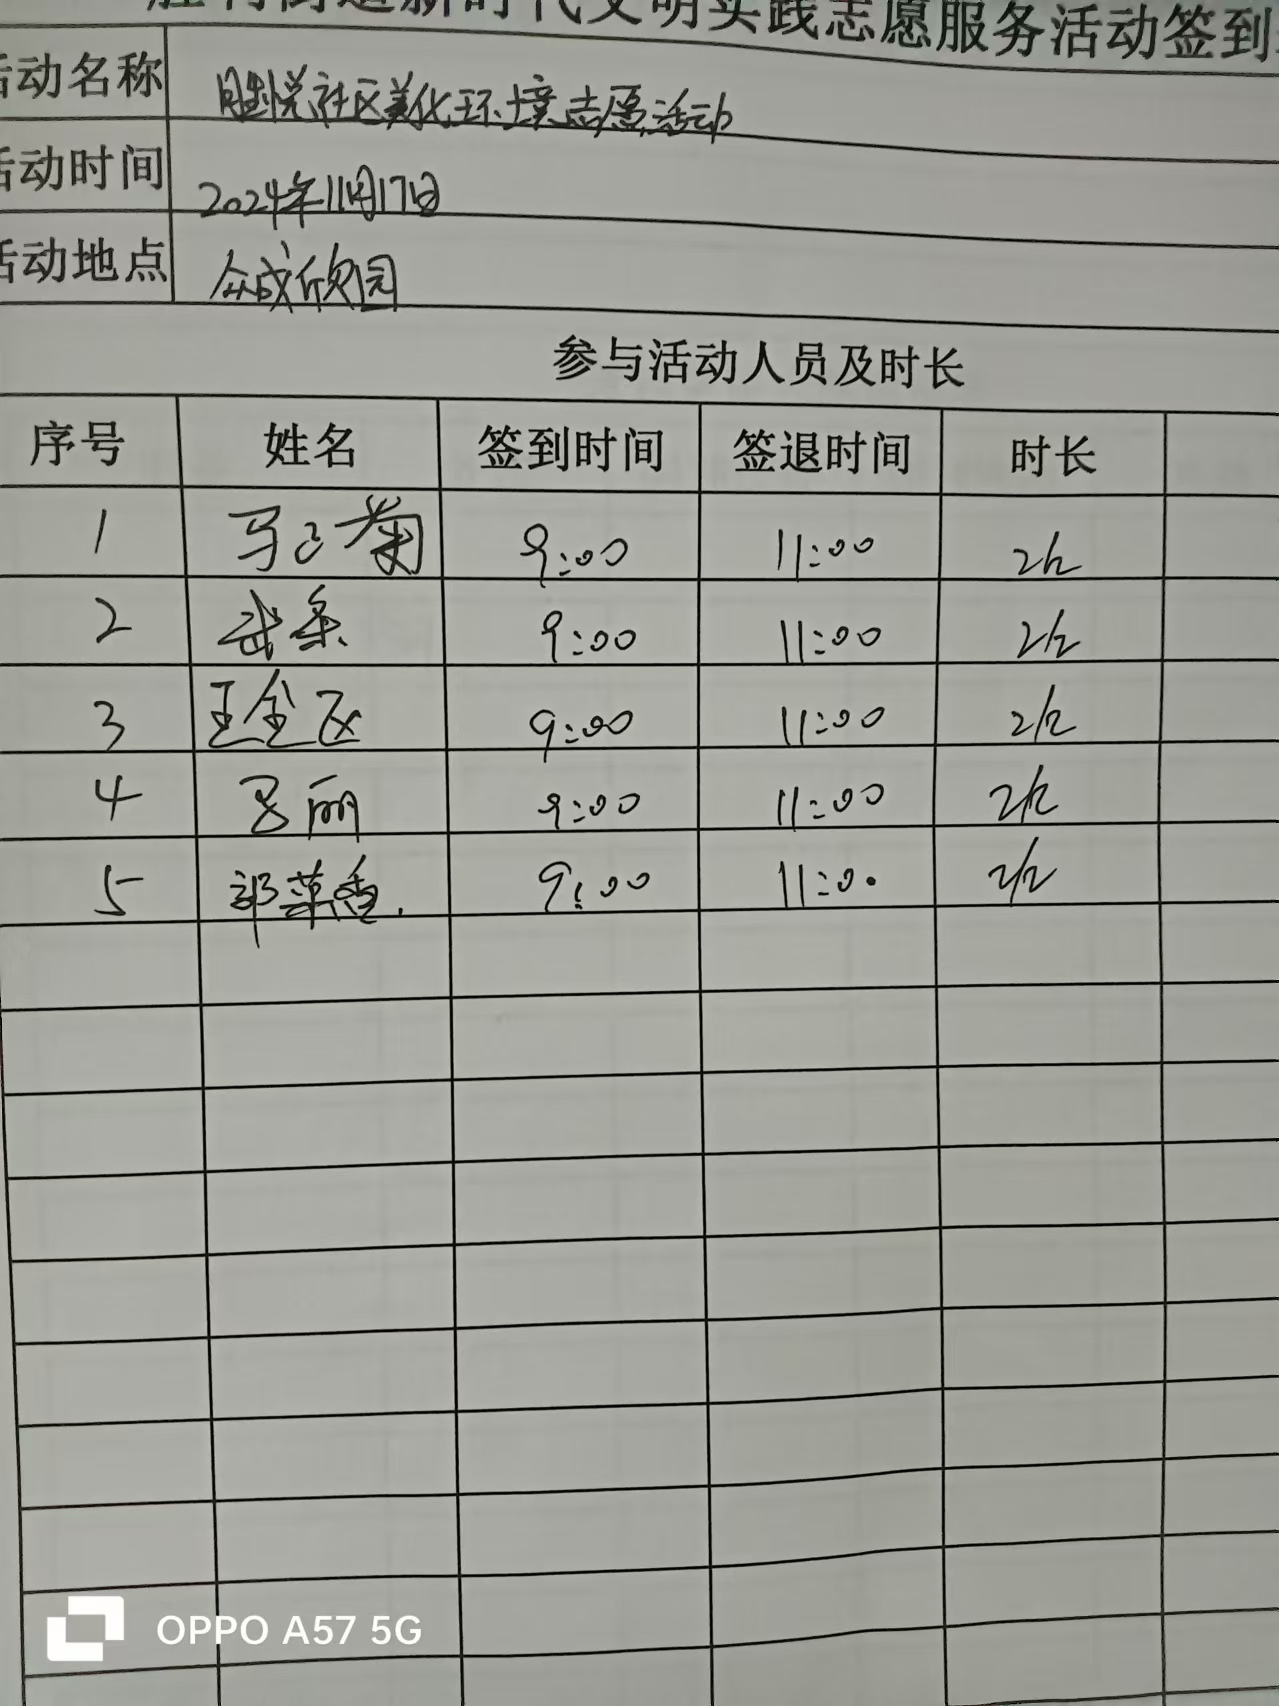 胜利街道新时代文明实践志愿服务活动签到
活动名称 胜悦社区美化环境志愿活动
活动时间 2024年11月17日
活动地点 众成欣园
参与活动人员及时长
序号 姓名 签到时间 签退时间 时长
1 9:00 11:00 2h
2 9:00 11:00 2h
3 王金区 9:00 11:00 2h
4 丽 9:00 11:00 2h
5 郭菜香. 9:00 11:00 2h
OPPO A57 5G